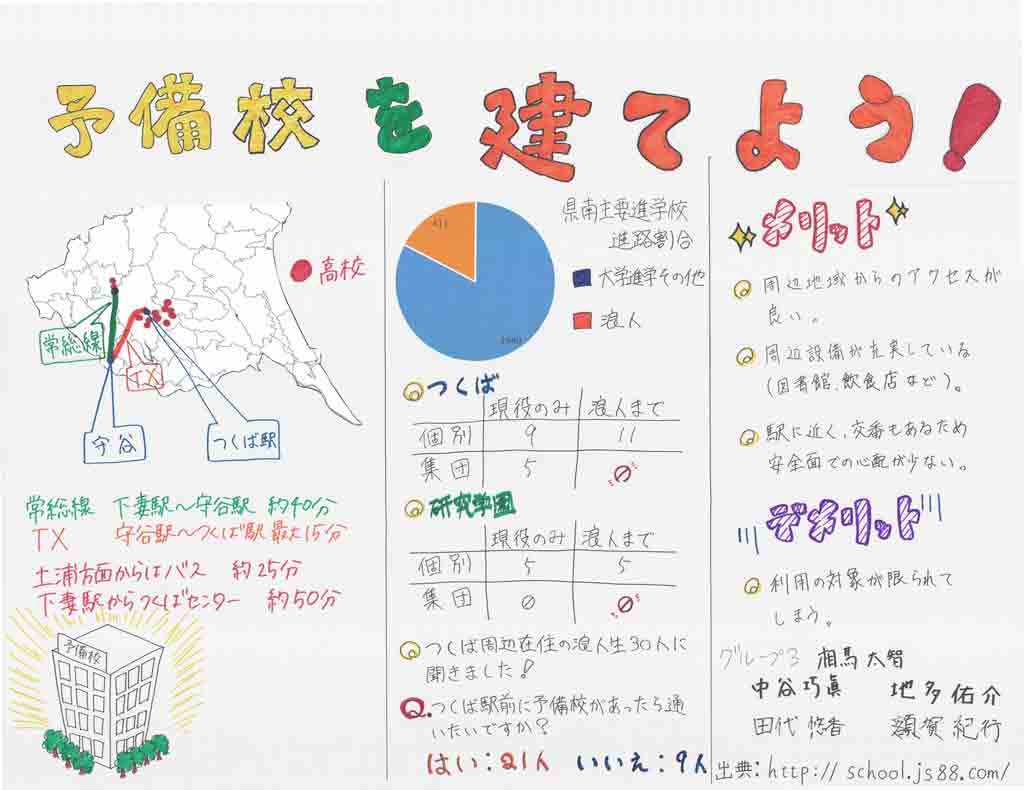 予備校を建てよう!
高校
常総線
TX
守谷
つくば駅
常総線 下妻駅〜守谷駅 約40分
TX 守谷駅〜つくば駅 最大15分
土浦方面からはバス 約25分
下妻駅からつくばセンター 約50分
予備校
県南主要進学校
進路割合
大学進学その他
浪人
つくば
現役のみ 浪人まで
個別 9 11
集団 5 0
研究学園
現役のみ 浪人まで
個別 5 5
集団 0 0
つくば周辺在住の浪人生30人に
聞きました!
Q.つくば駅前に予備校があったら通
いたいですか?
はい:21人 いいえ:9人
メリット
周辺地域からのアクセスが
良い。
周辺設備が充実している
(図書館、飲食店など)。
駅に近く、交番もあるため
安全面での心配が少ない。
デメリット
利用の対象が限られて
しまう。
グループ3 相馬太智
中谷巧眞 地多佑介
田代悠香 額賀紀行
出典:http://school.js88.com/